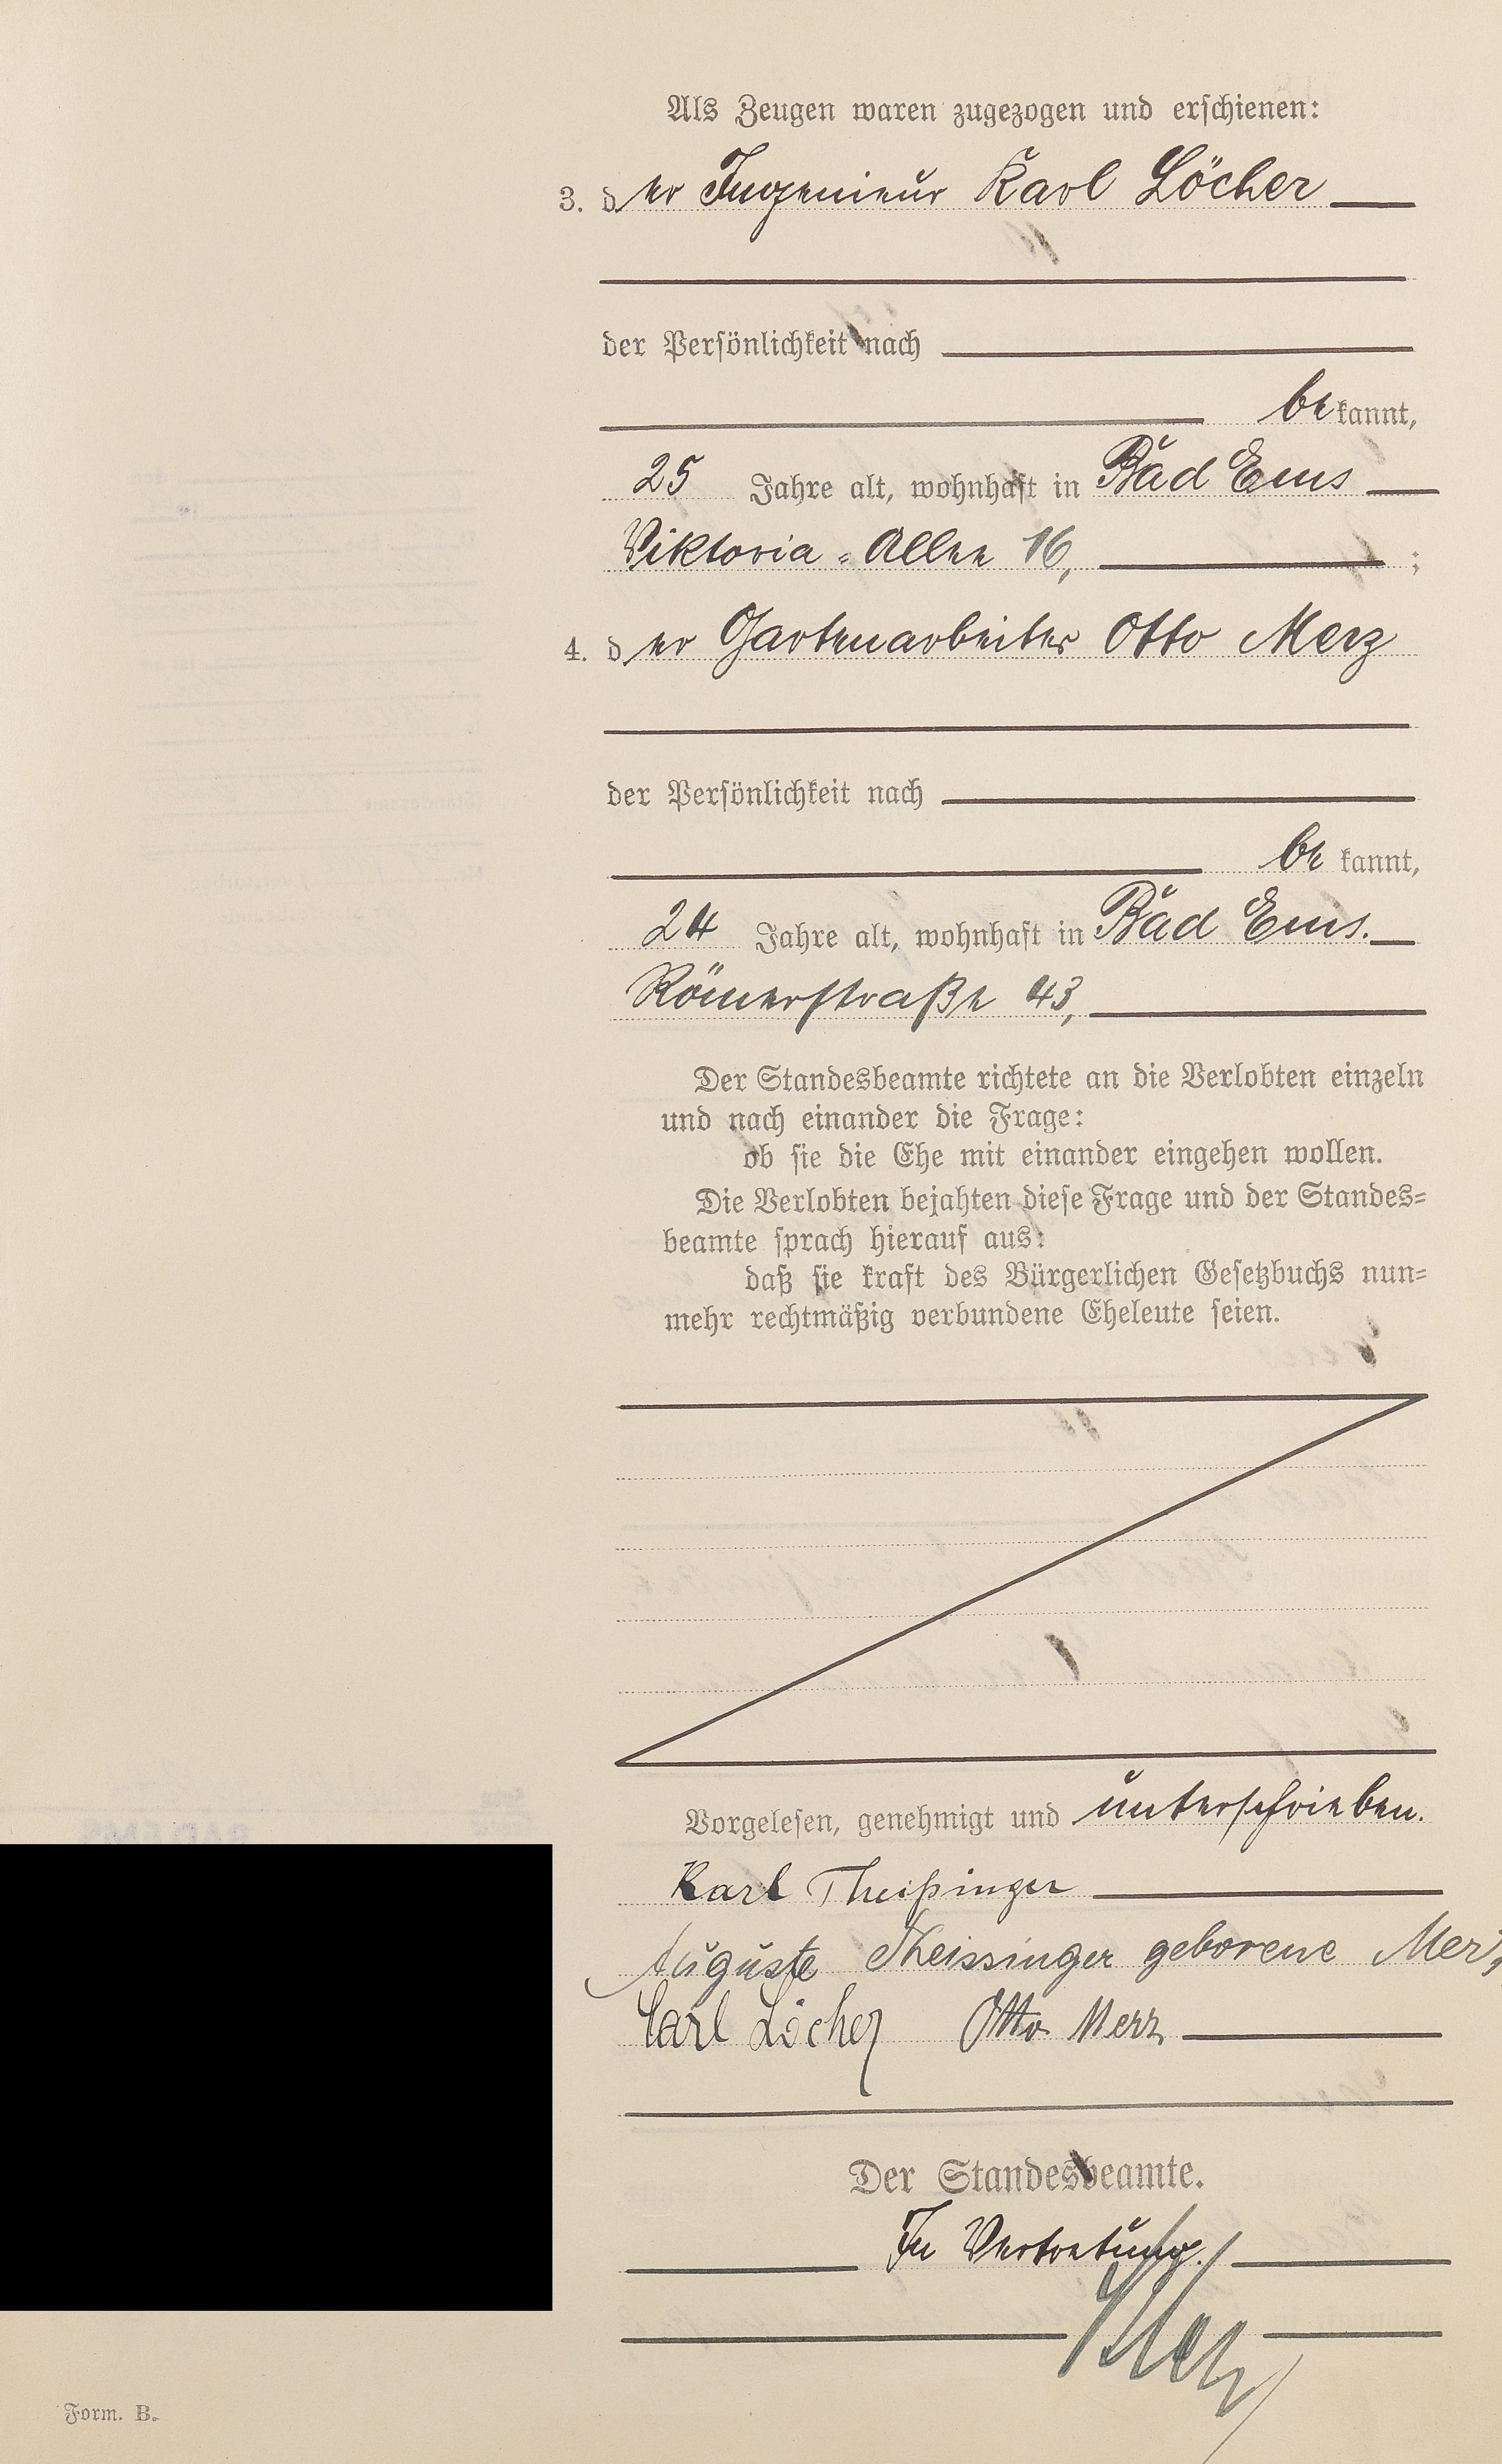 Als Zeugen waren zugezogen und erschienen:
3. der Ingenieur Karl Löcher
der Persönlichkeit nach
bekannt,
25 Jahre alt, wohnhaft in Bad Ems
Viktoria-Allee 16, ;
4. der Gartenarbeiter Otto Merz
der Persönlichkeit nach
bekannt,
24 Jahre alt, wohnhaft in Bad Ems.
Römerstraße 43,
Der Standesbeamte richtete an die Verlobten einzeln
und nach einander die Frage:
ob sie die Ehe mit einander eingehen wollen.
Die Verlobten bejahten diese Frage und der Standes-
beamte sprach hierauf aus:
daß sie kraft des Bürgerlichen Gesetzbuchs nun-
mehr rechtmäßig verbundene Eheleute seien.
Vorgelesen, genehmigt und unterschrieben.
Karl Theißinger
Auguste Theissinger geborene Merz
Carl Löcher Otto Merz
Der Standesbeamte.
In Vertretung.
Form. B.